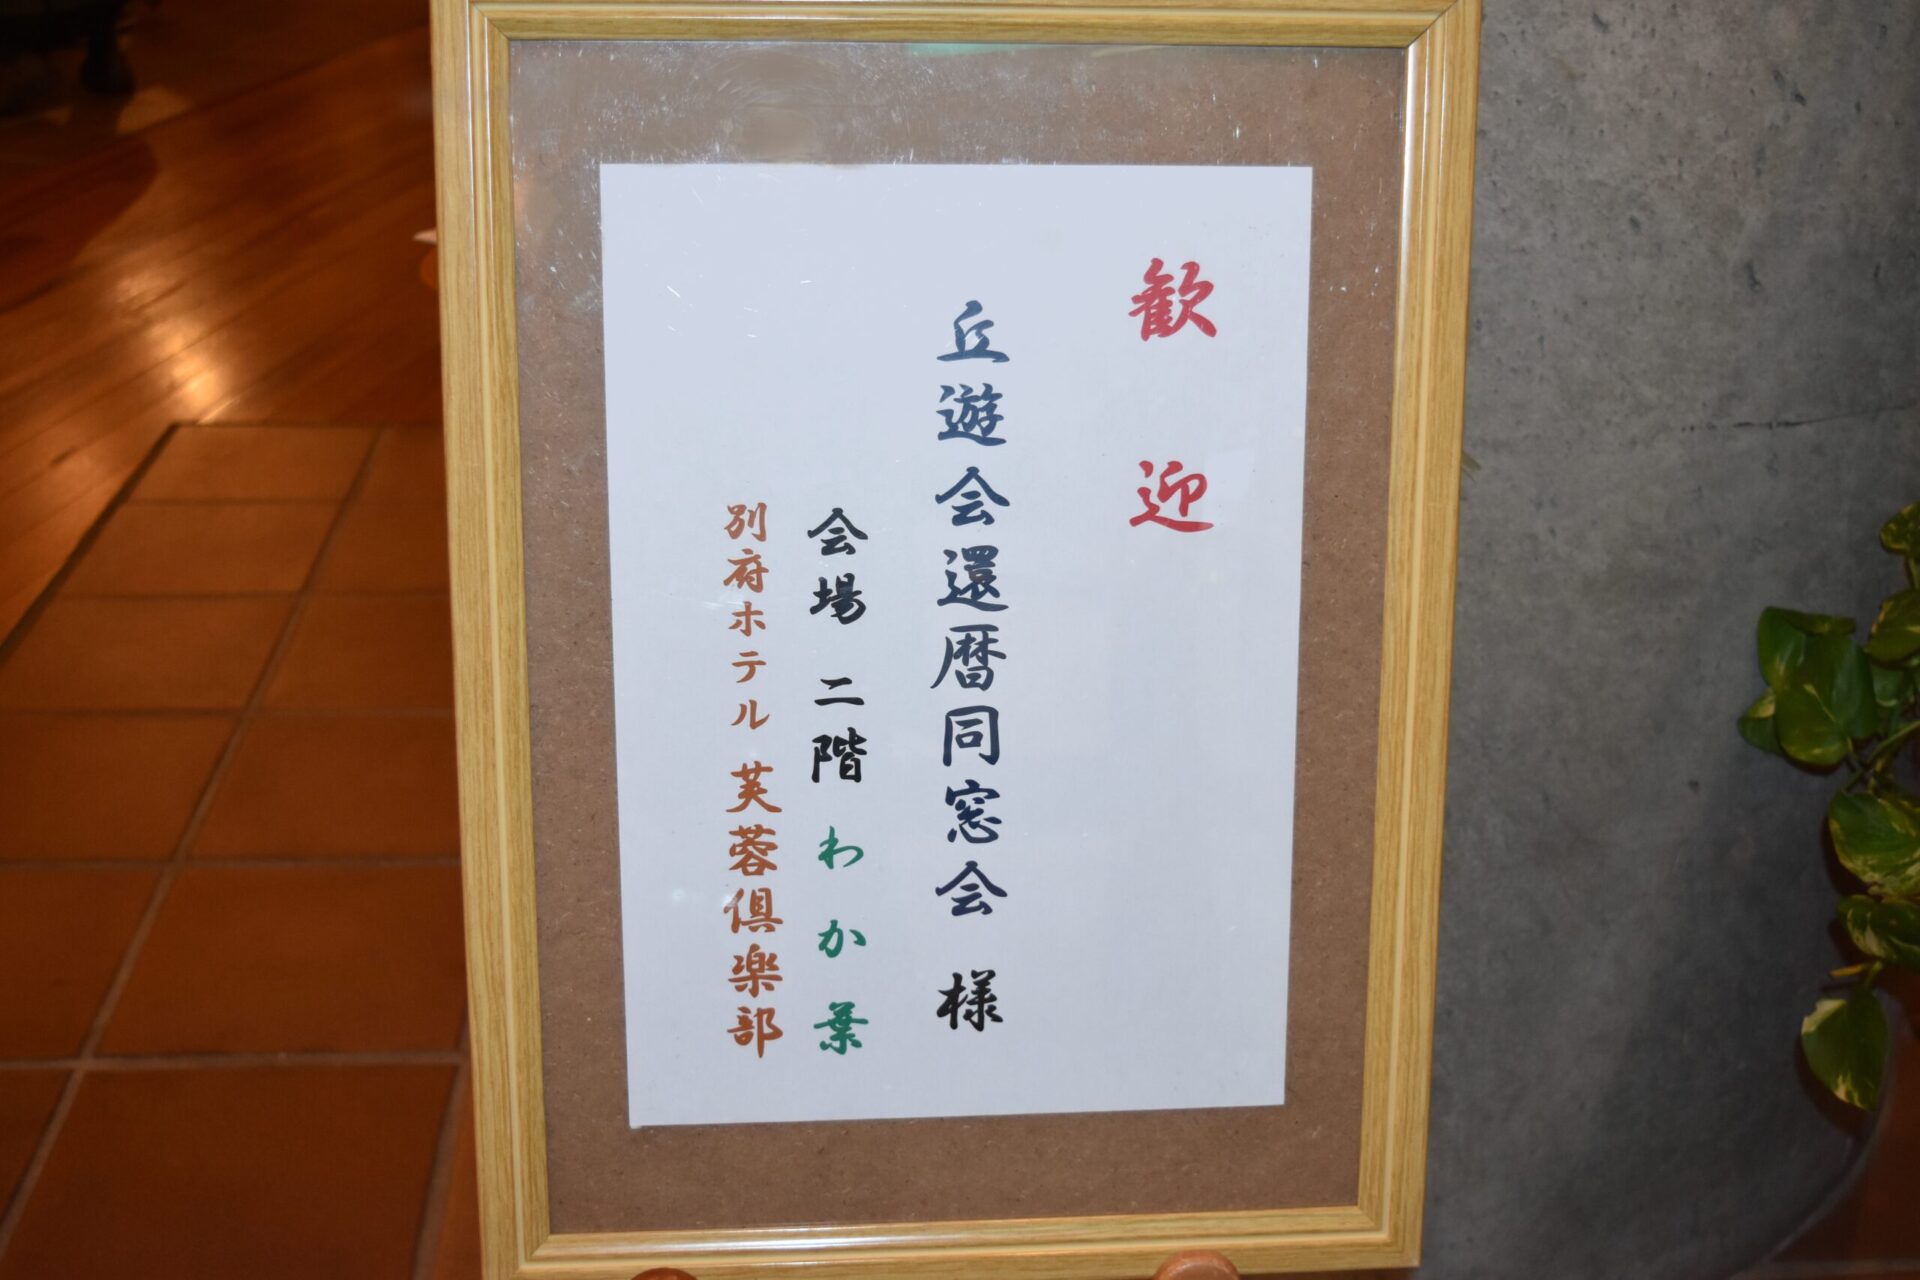 歓迎
丘遊会還暦同窓会 様
会場 二階 わか葉
別府ホテル 芙蓉倶楽部